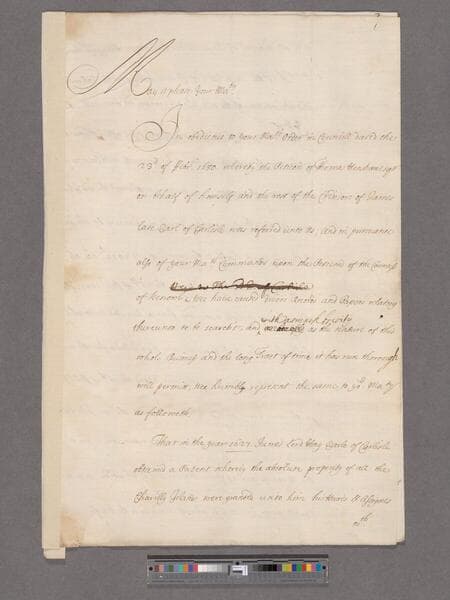 May it please Your Ma.ty
In obedience to your Ma.ts Order in Councill dated the
23.d of 1680. whereby the Petition of Thomas Henshaw Esqr
on behalf of himself and the rest of the Creditors of James
late Earl of Carlisle was referred unto Us. And in pursuance
also of your Ma.ts Commands upon the Petition of the
of we have caused divers Books and Papers relating
thereunto to be searched, and with as much brevity as the nature of this
whole Business and the long Tract of time it has run through
will permit, wee humbly represent the same to yo.r Ma.ty
as followeth.
That in the year 1627 James Lord Hay Earle of Carlisle
obtained a Patent whereby the absolute property of all the
Charibby Islands were granted unto him his Heirs & Assignes